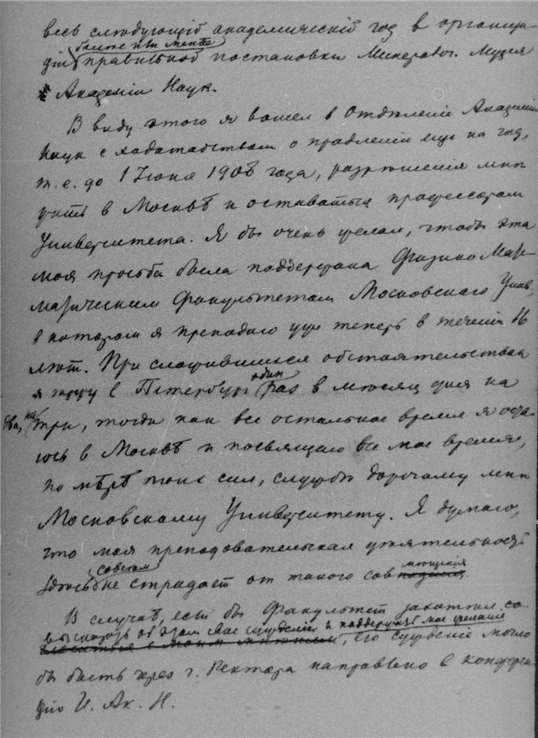 весь слѣдующій академическій год в организа-
ціи правильной постановки Минералог. Музея
Академіи Наук.
В виду этого я вошел в Отдѣленіе Академіи
Наук с ходатайством о продленіи еще на год,
т. е. до 1 Іюня 1908 года, разрѣшенія мнѣ
жить в Москвѣ и оставаться профессором
Университета. Я бы очень желал, чтобы эта
моя просьба была поддержана Физико-Мате-
матическим Факультетом Московскаго Унив.,
в котором я преподаю уже теперь в теченіи 16
лѣт. При сложившихся обстоятельствах
один
я езжу в Петербург раз в мѣсяц дня на
два, на три, тогда как все остальное время я оста-
юсь в Москвѣ и посвящаю все мое время,
по мѣрѣ моих сил, службѣ дорогому мнѣ
Московскому Университету. Я думаю,
что моя преподавательская дѣятельность
совсем
не страдает от такого
В случаѣ, если бы Факультет
высказать об этом свое сужденіе и поддержать мое
его сужденіе могло
бы быть через г. Ректора направлено в конферен-
цію И. Ак. Н.